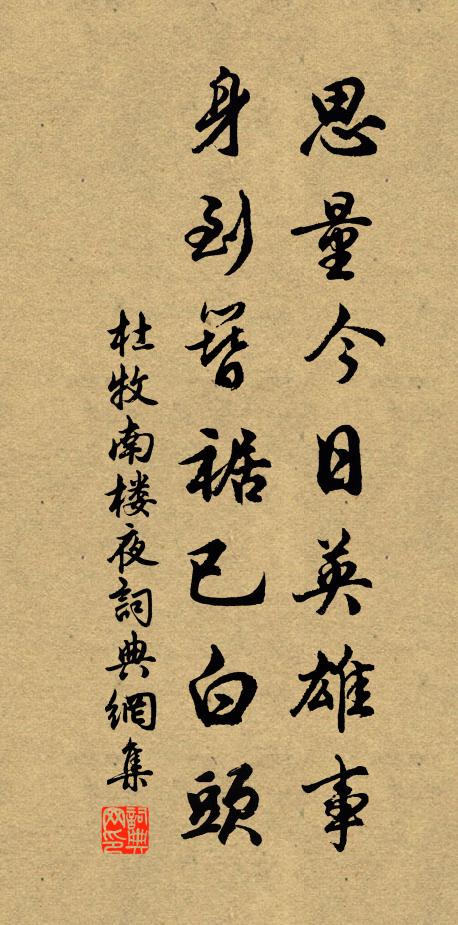 思量今日英雄事
身到簪裾已白頭
杜牧南楼夜詞典網集
詞典网印